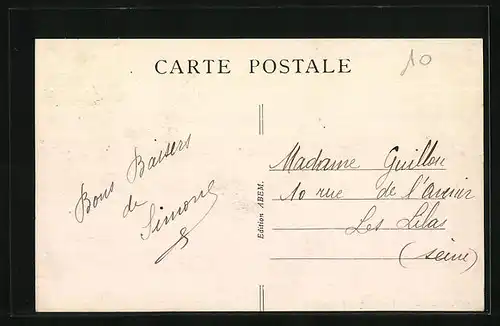 CARTE POSTALE
10
Bons Baisers
de
Simone
Edition ABEM.
Madame Guillou
10 rue de l'avenir
Les Lilas
(Seine)